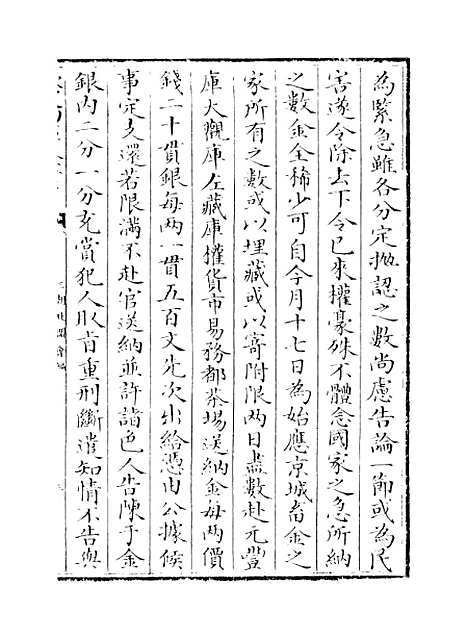 為緊急雖各分定拋認之數尚慮告論一節或為民
害遂令除去下令已來權豪殊不體念國家之急所納
之數金全稀少可自今月十七日為始應京城畜金之
家所有之數或以埋藏或以寄附限兩日盡數赴元豐
庫大觀庫左藏庫權貨市易務都茶場送納金每兩價
錢二十貫銀每兩一貫五百文先次出給憑由公據候
事定支還若限滿不赴官送納並許諸色人告陳于金
銀內二分一分充賞犯人取旨重刑斷遣知情不告與
三朝北盟會編